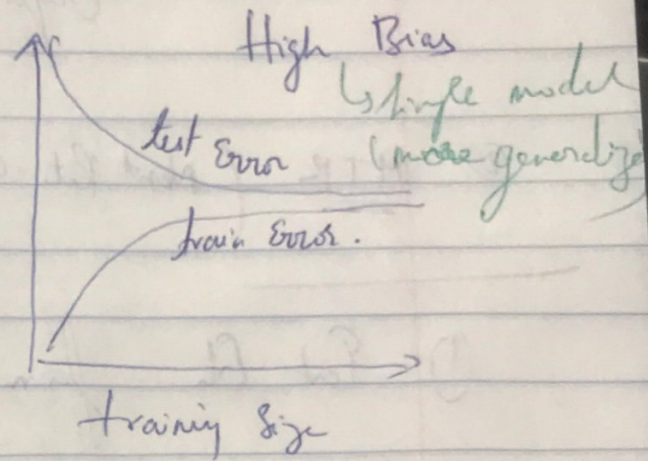 High Bias
↳ simple model
(more generalize)
test Error
train Error.
training size